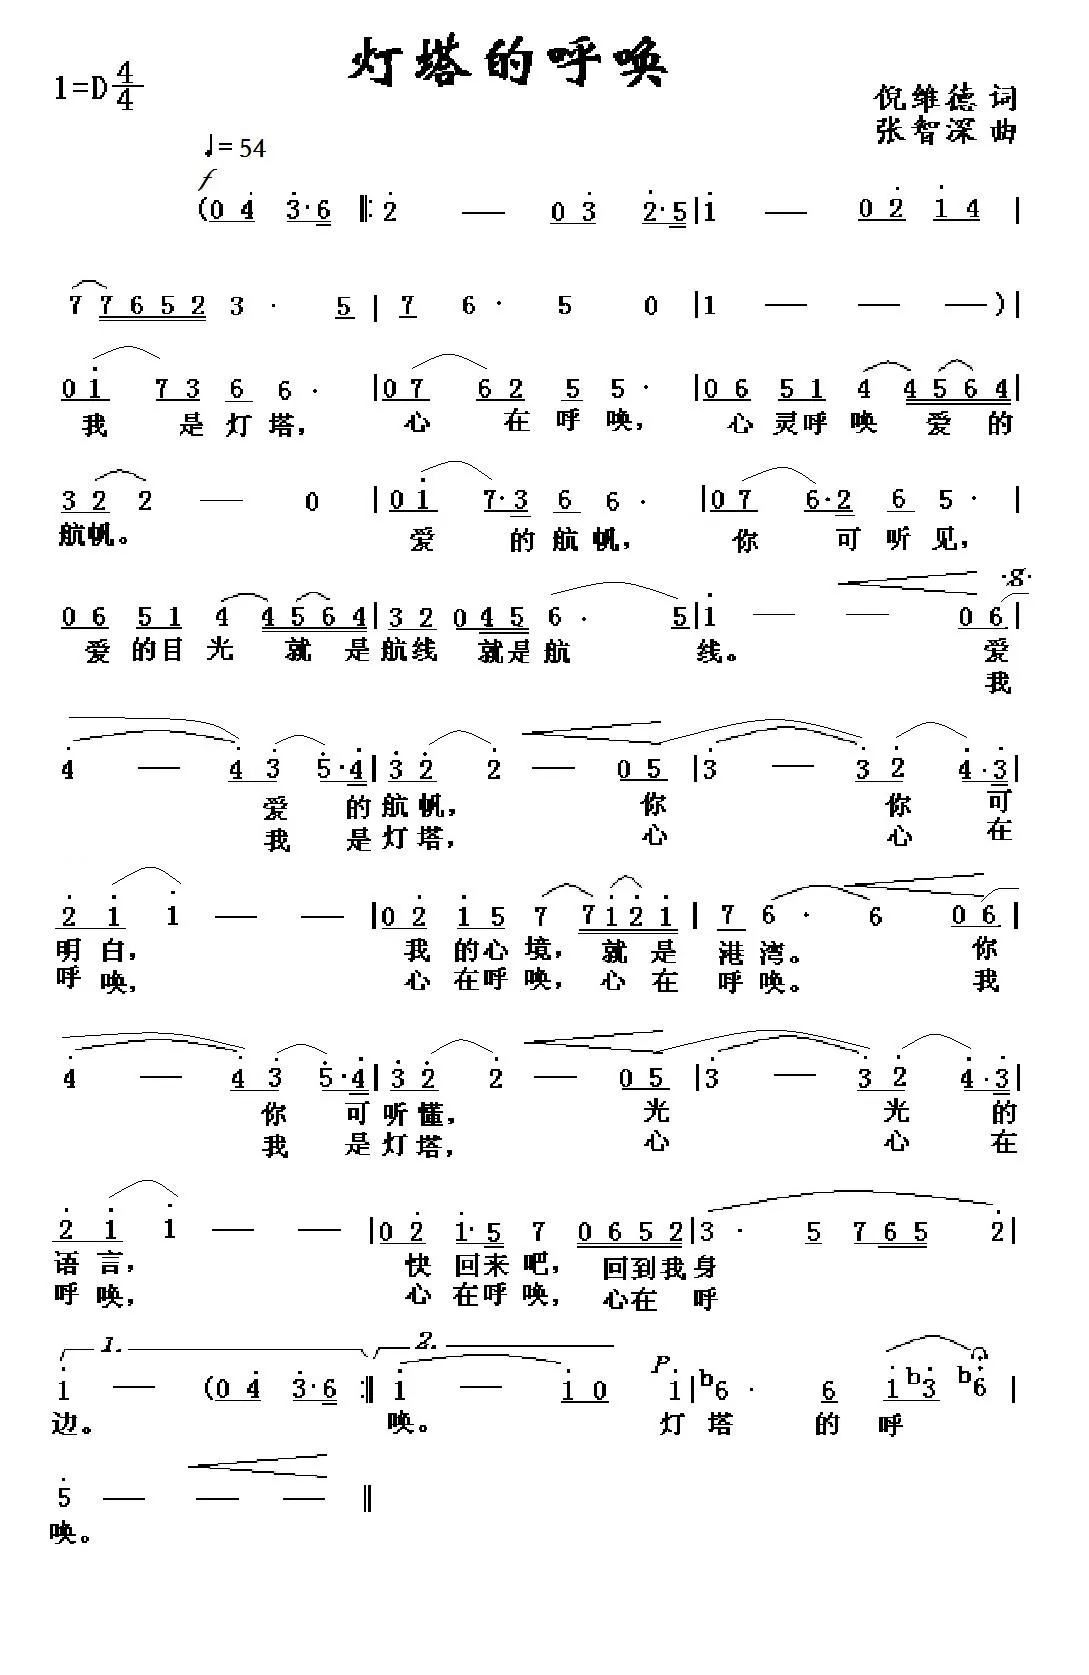 灯塔的呼唤
1=D 4/4
倪维德 词
张智深 曲
♩= 54
f
(0 4 3·6 ‖: 2 — 0 3 2·5 | 1 — 0 2 1 4 |
7 7 6 5 2 3 · 5 | 7 6 · 5 0 | 1 — — — ) |
0 1 7 3 6 6 · | 0 7 6 2 5 5 · | 0 6 5 1 4 4 5 6 4 |
我 是 灯 塔, 心 在 呼 唤, 心 灵 呼 唤 爱 的
3 2 2 — 0 | 0 1 7·3 6 6 · | 0 7 6·2 6 5 · |
航 帆。 爱 的 航 帆, 你 可 听 见,
0 6 5 1 4 4 5 6 4 | 3 2 0 4 5 6 · 5 | 1 — — 0 6 |
爱 的 目 光 就 是 航 线 就 是 航 线。 爱
我
4 — 4 3 5·4 | 3 2 2 — 0 5 | 3 — 3 2 4·3 |
爱 的 航 帆, 你 你 可
我 是 灯 塔, 心 心 在
2 1 1 — — | 0 2 1 5 7 7 1 2 1 | 7 6 · 6 0 6 |
明 白, 我 的 心 境, 就 是 港 湾。 你
呼 唤, 心 在 呼 唤, 心 在 呼 唤。 我
4 — 4 3 5·4 | 3 2 2 — 0 5 | 3 — 3 2 4·3 |
你 可 听 懂, 光 光 的
我 是 灯 塔, 心 心 在
2 1 1 — — | 0 2 1·5 7 0 6 5 2 | 3 · 5 7 6 5 2 |
语 言, 快 回 来 吧, 回 到 我 身
呼 唤, 心 在 呼 唤, 心 在 呼
1. 2. P
1 — (0 4 3·6 :‖ 1 — 1 0 1 | b6 · 6 1 b3 b6 |
边。 唤。 灯 塔 的 呼
5 — — — ‖
唤。